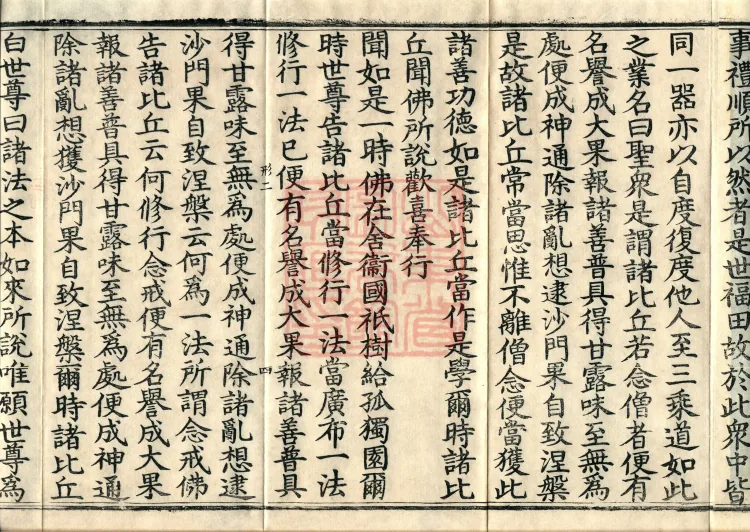 事禮順所以然者是世福田故於此衆中皆
同一器亦以自度復度他人至三乘道如此
之業名曰聖衆是謂諸比丘若念僧者便有
名譽成大果報諸善普具得甘露味至無爲
處便成神通除諸亂想逮沙門果自致涅槃
是故諸比丘常當思惟不離僧念便當獲此
諸善功德如是諸比丘當作是學爾時諸比
丘聞佛所說歡喜奉行
聞如是一時佛在舍衞國祇樹給孤獨園爾
時世尊告諸比丘當修行一法當廣布一法
修行一法已便有名譽成大果報諸善普具
形二 四
得甘露味至無爲處便成神通除諸亂想逮
沙門果自致涅槃云何爲一法所謂念戒佛
告諸比丘云何修行念戒便有名譽成大果
報諸善普具得甘露味至無爲處便成神通
除諸亂想獲沙門果自致涅槃爾時諸比丘
白世尊曰諸法之本如來所說唯願世尊爲